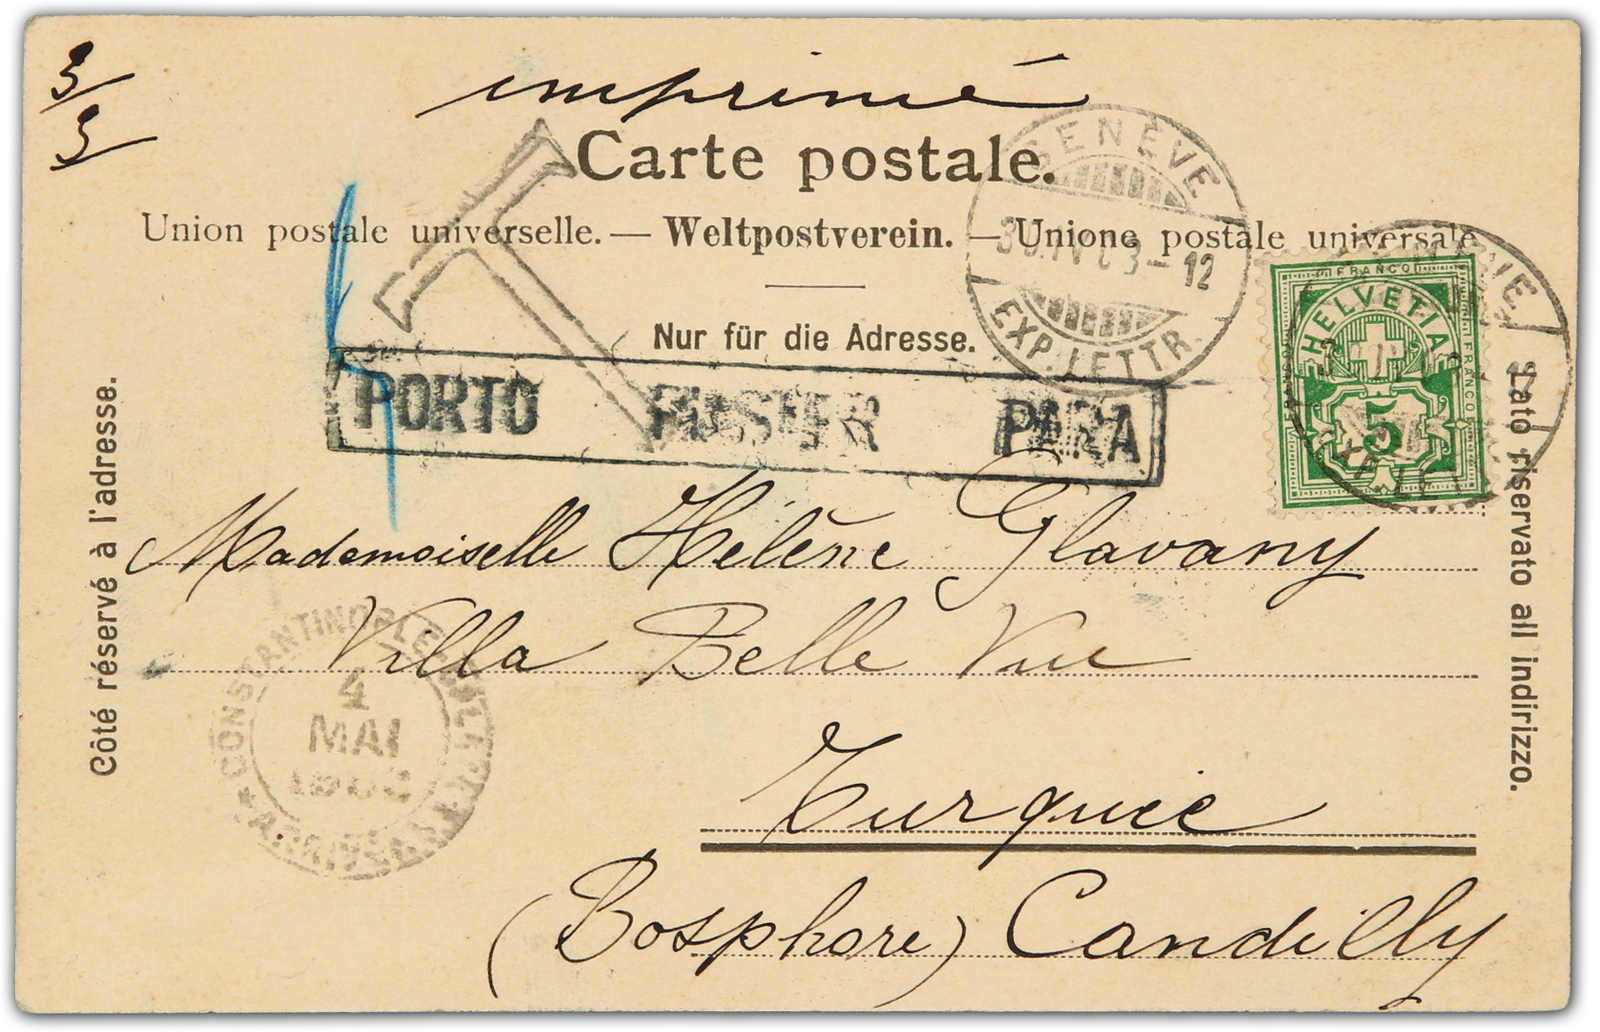 3/3
imprimé
Carte postale.
Union postale universelle. — Weltpostverein. — Unione postale universale
Nur für die Adresse.
GENÈVE
30.IV 03-12
EXP. LETTR.
T
PORTO PIASTER PARA
FRANCO
HELVETIA
FRANCO
5
Côté réservé à l'adresse.
Lato riservato all indirizzo.
Mademoiselle Hélène Glavany
Villa Belle Vue
CONSTANTINOPLE
4
MAI
ARRIVÉE
Turquie
(Bosphore) Candilly